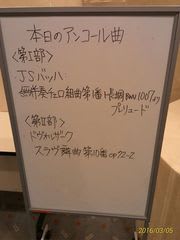 本日のアンコール曲
<第Ⅰ部>
JSバッハ:
無伴奏チェロ組曲第1番ト長調BWV1007より
プレリュード
<第Ⅱ部>
ドヴォルザーク
スラヴ舞曲 第10番 op72-2
2016/03/05